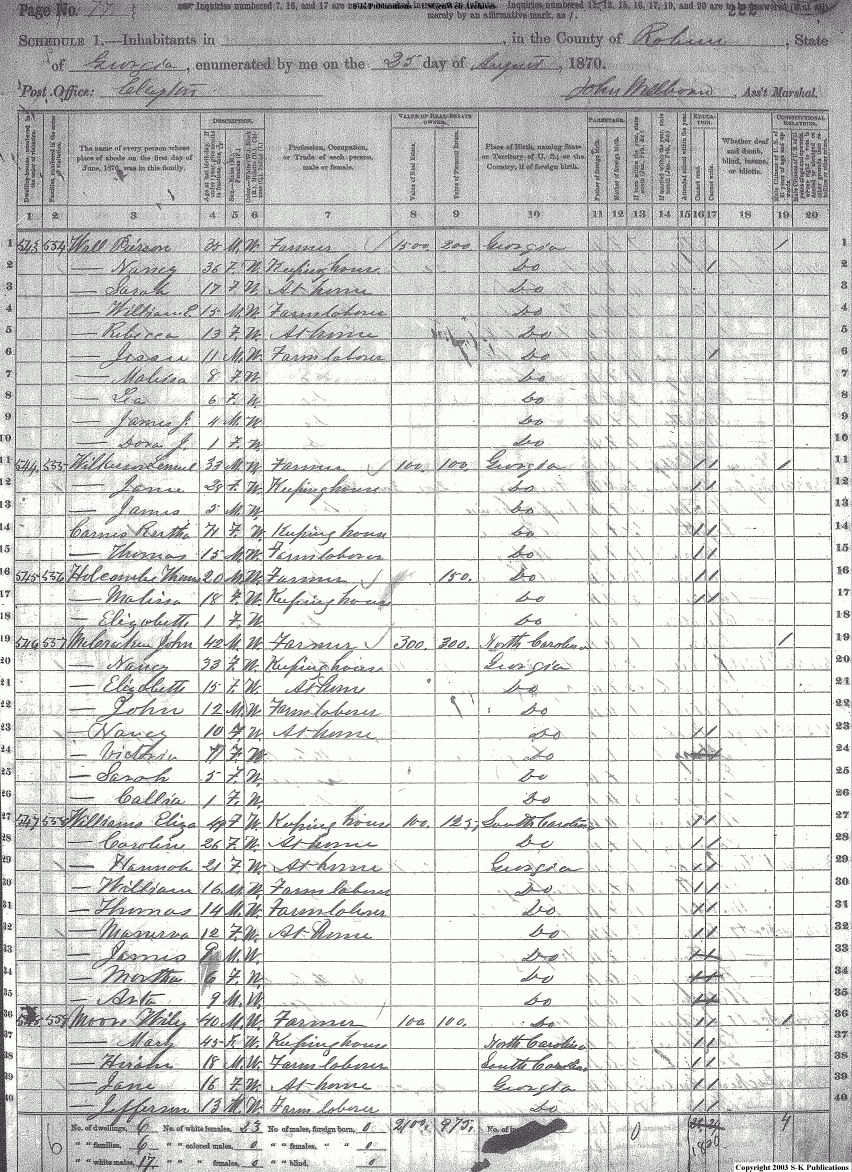 Page No. 77
Inquiries numbered 7, 16, and 17 are not
S-K Publications
Inquiries numbered 11, 12, 15, 16, 17, 19, and 20 are to be answered (if at all)
merely by an affirmative mark, as /.
SCHEDULE 1.—Inhabitants in , in the County of Rabun, State
of Georgia, enumerated by me on the 25 day of August, 1870.
Post Office: Clayton
John , Ass't Marshal.
Dwelling-houses, numbered in the order of visitation.
Families, numbered in the order of visitation.
The name of every person whose place of abode on the first day of June, 1870, was in this family.
DESCRIPTION.
Profession, Occupation, or Trade of each person, male or female.
VALUE OF REAL ESTATE OWNED.
Value of Real Estate.
Value of Personal Estate.
Place of Birth, naming State or Territory of U. S.; or the Country, if of foreign birth.
PARENTAGE.
Father of foreign birth.
Mother of foreign birth.
Attended school within the year.
EDUCATION.
Cannot read.
Cannot write.
Whether deaf and dumb, blind, insane, or idiotic.
CONSTITUTIONAL RELATIONS.
1 2 3 4 5 6 7 8 9 10 11 12 13 14 15 16 17 18 19 20
1 543 534 Wall Pierson 35 M. W. Farmer 1500. 200. Georgia / 1
2 — Nancy 36 F. W. Keeping house Do / 2
3 — Sarah 17 F W At home Do 3
4 — William 15 M. W. Farm laborer Do 4
5 — Rebecca 13 F. W. At home Do 5
6 — Jessie 11 M. W. Farm laborer Do / 6
7 — Malissa 8 F. W. Do 7
8 — Lea 6 F. W. Do 8
9 — James J. 4 M. W. Do 9
10 — Dora J. 1 F. W. Do 10
11 544 535 Wilkerson Lemuel 33 M. W. Farmer 100. 100. Georgia / / / 11
12 — Jane 28 F. W. Keeping house Do / / 12
13 — James 5 M. W. Do 13
14 Carnes Bertha 71 F. W. Keeping house Do / / 14
15 — Thomas 15 M. W. Farm laborer Do / / 15
16 545 536 Holcombe Thomas 20 M. W. Farmer 150. Do / / 16
17 — Malissa 18 F. W. Keeping house Do / / 17
18 — Elizabeth 1 F. W. Do 18
19 546 537 McCraken John 42 M. W. Farmer 300. 300. North Carolina / 19
20 — Nancy 33 F. W. Keeping house Georgia 20
21 — Elizabeth 15 F. W. At home Do 21
22 — John 12 M. W. Farm laborer Do 22
23 — Nancy 10 F. W. At home Do / / 23
24 — Victoria 7 F. W. Do 24
25 — Sarah 5 F. W. Do 25
26 — Callia 1 F. W. Do 26
27 547 538 Williams Eliza 49 F W. Keeping house 100. 125 South Carolina / / 27
28 — Caroline 26 F. W. At home Do / / 28
29 — Hannah 21 F. W. At home Georgia / / 29
30 — William 16 M. W. Farm laborer Do / / 30
31 — Thomas 14 M. W. Farm laborer Do / / 31
32 — Manerva 12 F. W. At Home Do / / 32
33 — James M. W. Do 33
34 — Martha 6 F. W. Do 34
35 — 9 M. W. Do 35
36 548 539 Moore Wiley 40 M. W. Farmer 100. 100. Do / / / 36
37 — Mary 45 F. W. Keeping house North Carolina / / 37
38 — Hiram 18 M. W. Farm laborer South Carolina / / 38
39 — Jane 16 F. W. At home Georgia / / 39
40 — Jefferson 13 M. W. Farm laborer Do / / 40
No. of dwellings, 6 No. of white females, 23 No. of males, foreign born, 0 2100. 975. 0 4
" " families, 6 " " colored males, 0 " " females, " " 0
" " white males, 17 " " females, 0 " " blind, 0
Copyright 2003 S-K Publications